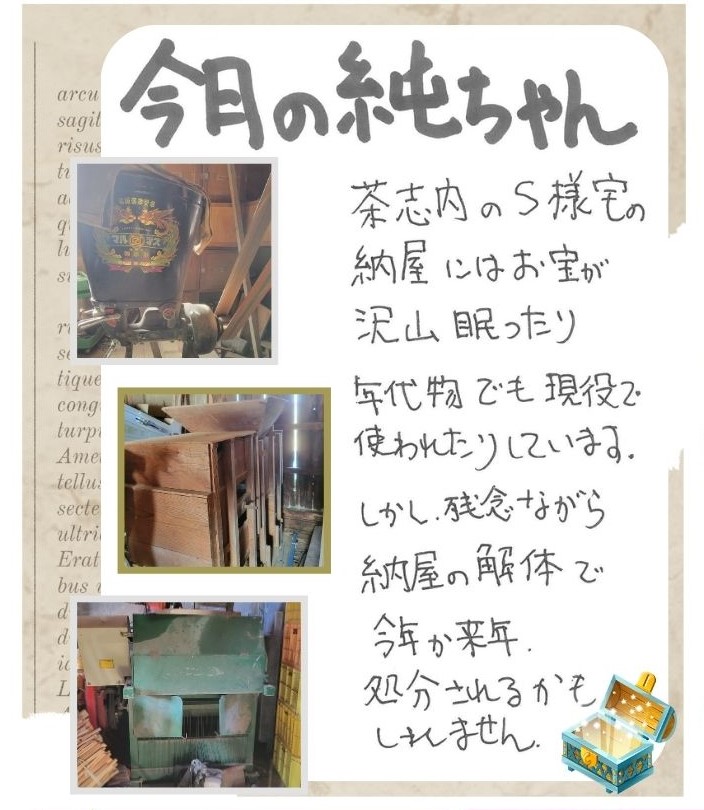 今日の純ちゃん
茶志内のS様宅の
納屋にはお宝が
沢山眠ったり
年代物でも現役で
使われたりしています。
しかし、残念ながら
納屋の解体で
今年か来年、
処分されるかも
しれません。
マルマス
arcu
sagit
risus
tique
cong
turpi
Ame
tellus
secte
ultri
Erat
bus